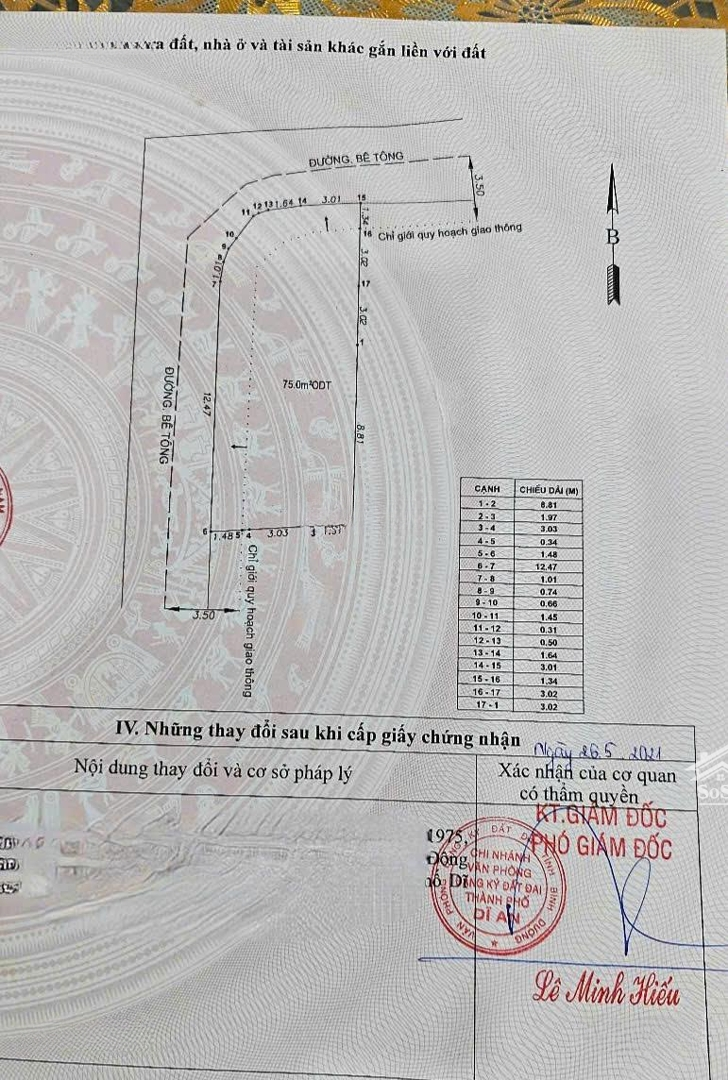 đất, nhà ở và tài sản khác gắn liền với đất
ĐƯỜNG BÊ TÔNG
3.50
11 12 13 1.64 14 3.01 15
1.34
16
Chỉ giới quy hoạch giao thông
B
10
9
8
1.01
7
3.02
17
3.02
1
75.0m²ODT
12.47
8.81
ĐƯỜNG BÊ TÔNG
6 1.48 5 4 3.03 3
3.50
Chỉ giới quy hoạch giao thông
CẠNH CHIỀU DÀI (M)
1 - 2 8.81
2 - 3 1.97
3 - 4 3.03
4 - 5 0.34
5 - 6 1.48
6 - 7 12.47
7 - 8 1.01
8 - 9 0.74
9 - 10 0.66
10 - 11 1.45
11 - 12 0.31
12 - 13 0.50
13 - 14 1.64
14 - 15 3.01
15 - 16 1.34
16 - 17 3.02
17 - 1 3.02
IV. Những thay đổi sau khi cấp giấy chứng nhận
Ngày 26.5.2021
Nội dung thay đổi và cơ sở pháp lý
Xác nhận của cơ quan
có thẩm quyền
KT.GIÁM ĐỐC
PHÓ GIÁM ĐỐC
1975,
Đông
Dĩ
VĂN PHÒNG ĐĂNG KÝ ĐẤT ĐAI TỈNH BÌNH DƯƠNG
CHI NHÁNH
VĂN PHÒNG
ĐĂNG KÝ ĐẤT ĐAI
THÀNH PHỐ
DĨ AN
Lê Minh Hiếu